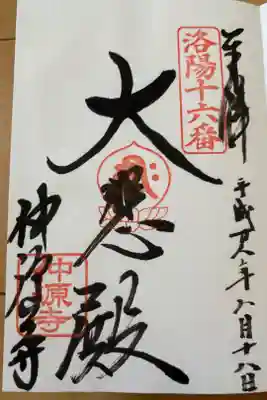 奉拝
平成廿八年八月十八日
洛陽十六番
大悲殿
仲源寺
中原寺